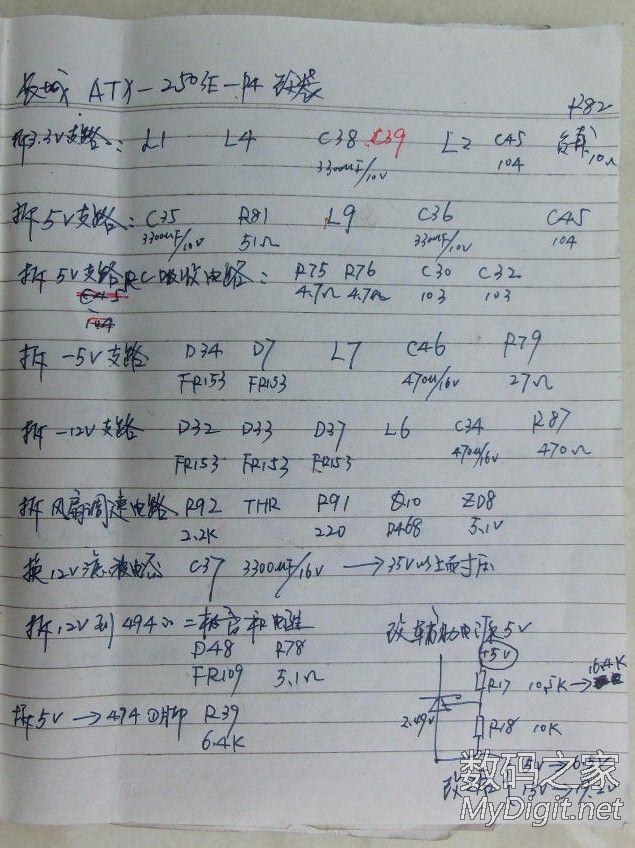 长城 ATX-250SE-P4 改装
R82
拆3.3V支路: L1 L4 C38 C39 L2 C45 负载
3300uF/10V 104 10Ω
拆5V支路: C35 R81 L9 C36 C45
3300uF/10V 51Ω 3300uF/10V 104
拆5V支路RC吸收电路: R75 R76 C30 C32
C45 4.7Ω 4.7Ω 103 103
104
拆-5V支路 D34 D7 L7 C46 R79
FR153 FR153 470u/16V 27Ω
拆-12V支路 D32 D33 D37 L6 C34 R87
FR153 FR153 FR153 470u/16V 470Ω
拆风扇调速电路 R92 THR R91 Q10 ZD8
2.2K 220 D468 5.1V
换12V滤波电容 C37 3300uF/16V →35V以上耐压
拆12V到494的二极管和电阻 改辅助电源5V
D48 R78 +5V
FR109 5.1Ω R17 10.5K→16.4K
拆5V→494①脚 R39 2.49V R18 10K
6.4K
5V→6.5V
数码之家
MyDigit.net